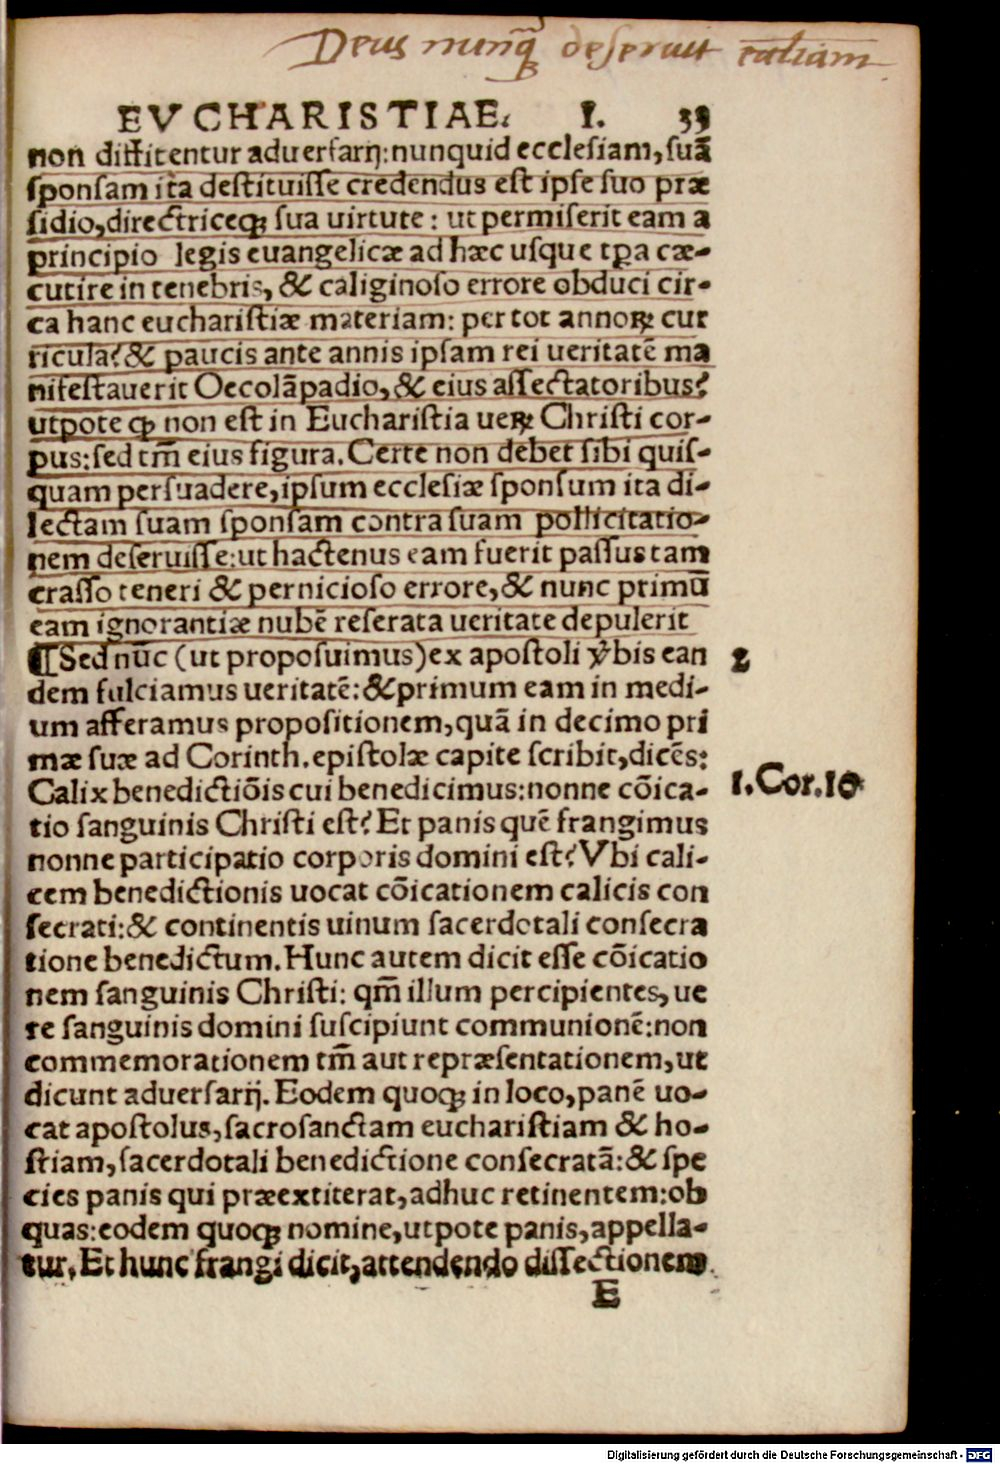 Deus nunq̃ȝ deseruit ecc̄liam
EVCHARISTIAE. I. 33
non diffitentur aduerſarij: nunquid eccleſiam, ſuã
ſponſam ita deſtituiſſe credendus eſt ipſe ſuo præ
ſidio, directriceqꝫ ſua uirtute: ut permiſerit eam a
principio legis euangelicæ ad hæc uſque tꝑa cæ-
cutire in tenebris, & caliginoſo errore obduci cir-
ca hanc euchariſtiæ materiam: per tot annoꝝ cur
ricula? & paucis ante annis ipſam rei ueritatẽ ma
nifeſtauerit Oecolãpadio, & eius aſſectatoribus?
utpote ꝙ non eſt in Euchariſtia ueꝝ Chriſti cor-
pus: ſed tm̃ eius figura. Certe non debet ſibi quiſ-
quam perſuadere, ipſum eccleſiæ ſponſum ita di-
lectam ſuam ſponſam contra ſuam pollicitatio-
nem deſeruiſſe: ut hactenus eam fuerit paſſus tam
craſſo teneri & pernicioſo errore, & nunc primũ
eam ignorantiæ nubẽ reſerata ueritate depulerit
¶Sed nũc (ut propoſuimus) ex apoſtoli v̑bis ean
2
dem fulciamus ueritatẽ: & primum eam in medi-
um afferamus propoſitionem, quã in decimo pri
mæ ſuæ ad Corinth. epiſtolæ capite ſcribit, dicẽs:
Calix benedictiõis cui benedicimus: nonne cõica-
1. Cor. 10
tio ſanguinis Chriſti eſt? Et panis quẽ frangimus
nonne participatio corporis domini eſt? Vbi cali-
cem benedictionis uocat cõicationem calicis con
ſecrati: & continentis uinum ſacerdotali conſecra
tione benedictum. Hunc autem dicit eſſe cõicatio
nem ſanguinis Chriſti: qm̃ illum percipientes, ue
re ſanguinis domini ſuſcipiunt communionẽ: non
commemorationem tm̃ aut repræſentationem, ut
dicunt aduerſarij. Eodem quoqꝫ in loco, panẽ uo-
cat apoſtolus, ſacroſanctam euchariſtiam & ho-
ſtiam, ſacerdotali benedictione conſecratã: & ſpe
cies panis qui præextiterat, adhuc retinentem: ob
quas: eodem quoqꝫ nomine, utpote panis, appella-
tur. Et hunc frangi dicit, attendendo diſſectionem
E
Digitalisierung gefördert durch die Deutsche Forschungsgemeinschaft - DFG